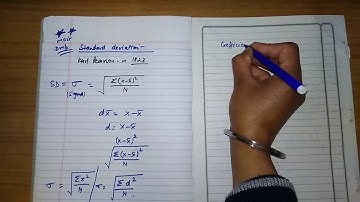 Standard deviation -
Karl Pearson - in 1823
SD = σ = √Σ(x-x̄)²/N
(Sigma)
dx̄ = x - x̄
d = x - x̄
(x-x̄)²
√Σ(x-x̄)²/N
σ = √Σx²/N σ = √Σd²/N
Coefficien